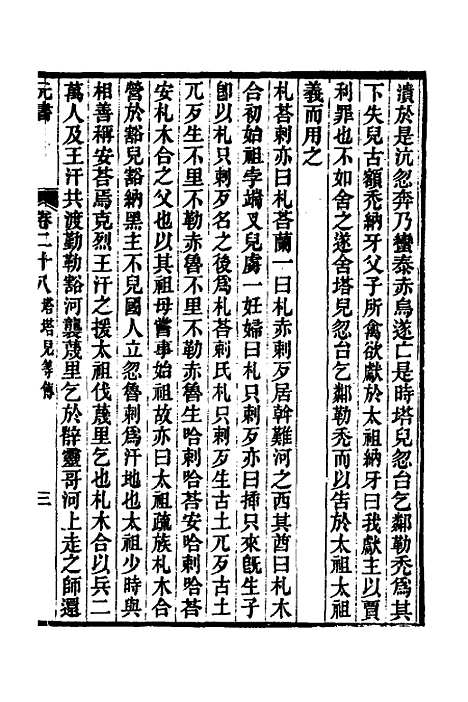 潰於是沆忽奔乃蠻泰赤烏遂亡是時塔兒忽台乞鄰勒禿爲其
下失兒古額禿納牙父子所禽欲獻於太祖納牙曰我獻主以賈
利罪也不如舍之遂舍塔兒忽台乞鄰勒禿而以告於太祖太祖
義而用之
札荅剌亦曰札荅蘭一曰札赤剌歹居斡難河之西其酋曰札木
合初始祖孛端叉兒虜一妊婦曰札只剌歹亦曰揷只來旣生子
卽以札只剌歹名之後爲札荅剌氏札只剌歹生古土兀歹古土
兀歹生不里不勒赤魯不里不勒赤魯生哈剌哈荅安哈剌哈荅
安札木合之父也以其祖母舊事始祖故亦曰太祖疏族札木合
營於豁兒豁納黑主不兒國人立忽魯剌爲汗地也太祖少時與
相善稱安荅焉克烈王汗之援太祖伐蔑里乞也札木合以兵二
萬人及王汗共渡勤勒豁河襲蔑里乞於薛靈哥河上走之師還
元書
卷二十八 塔塔兒等傳
三